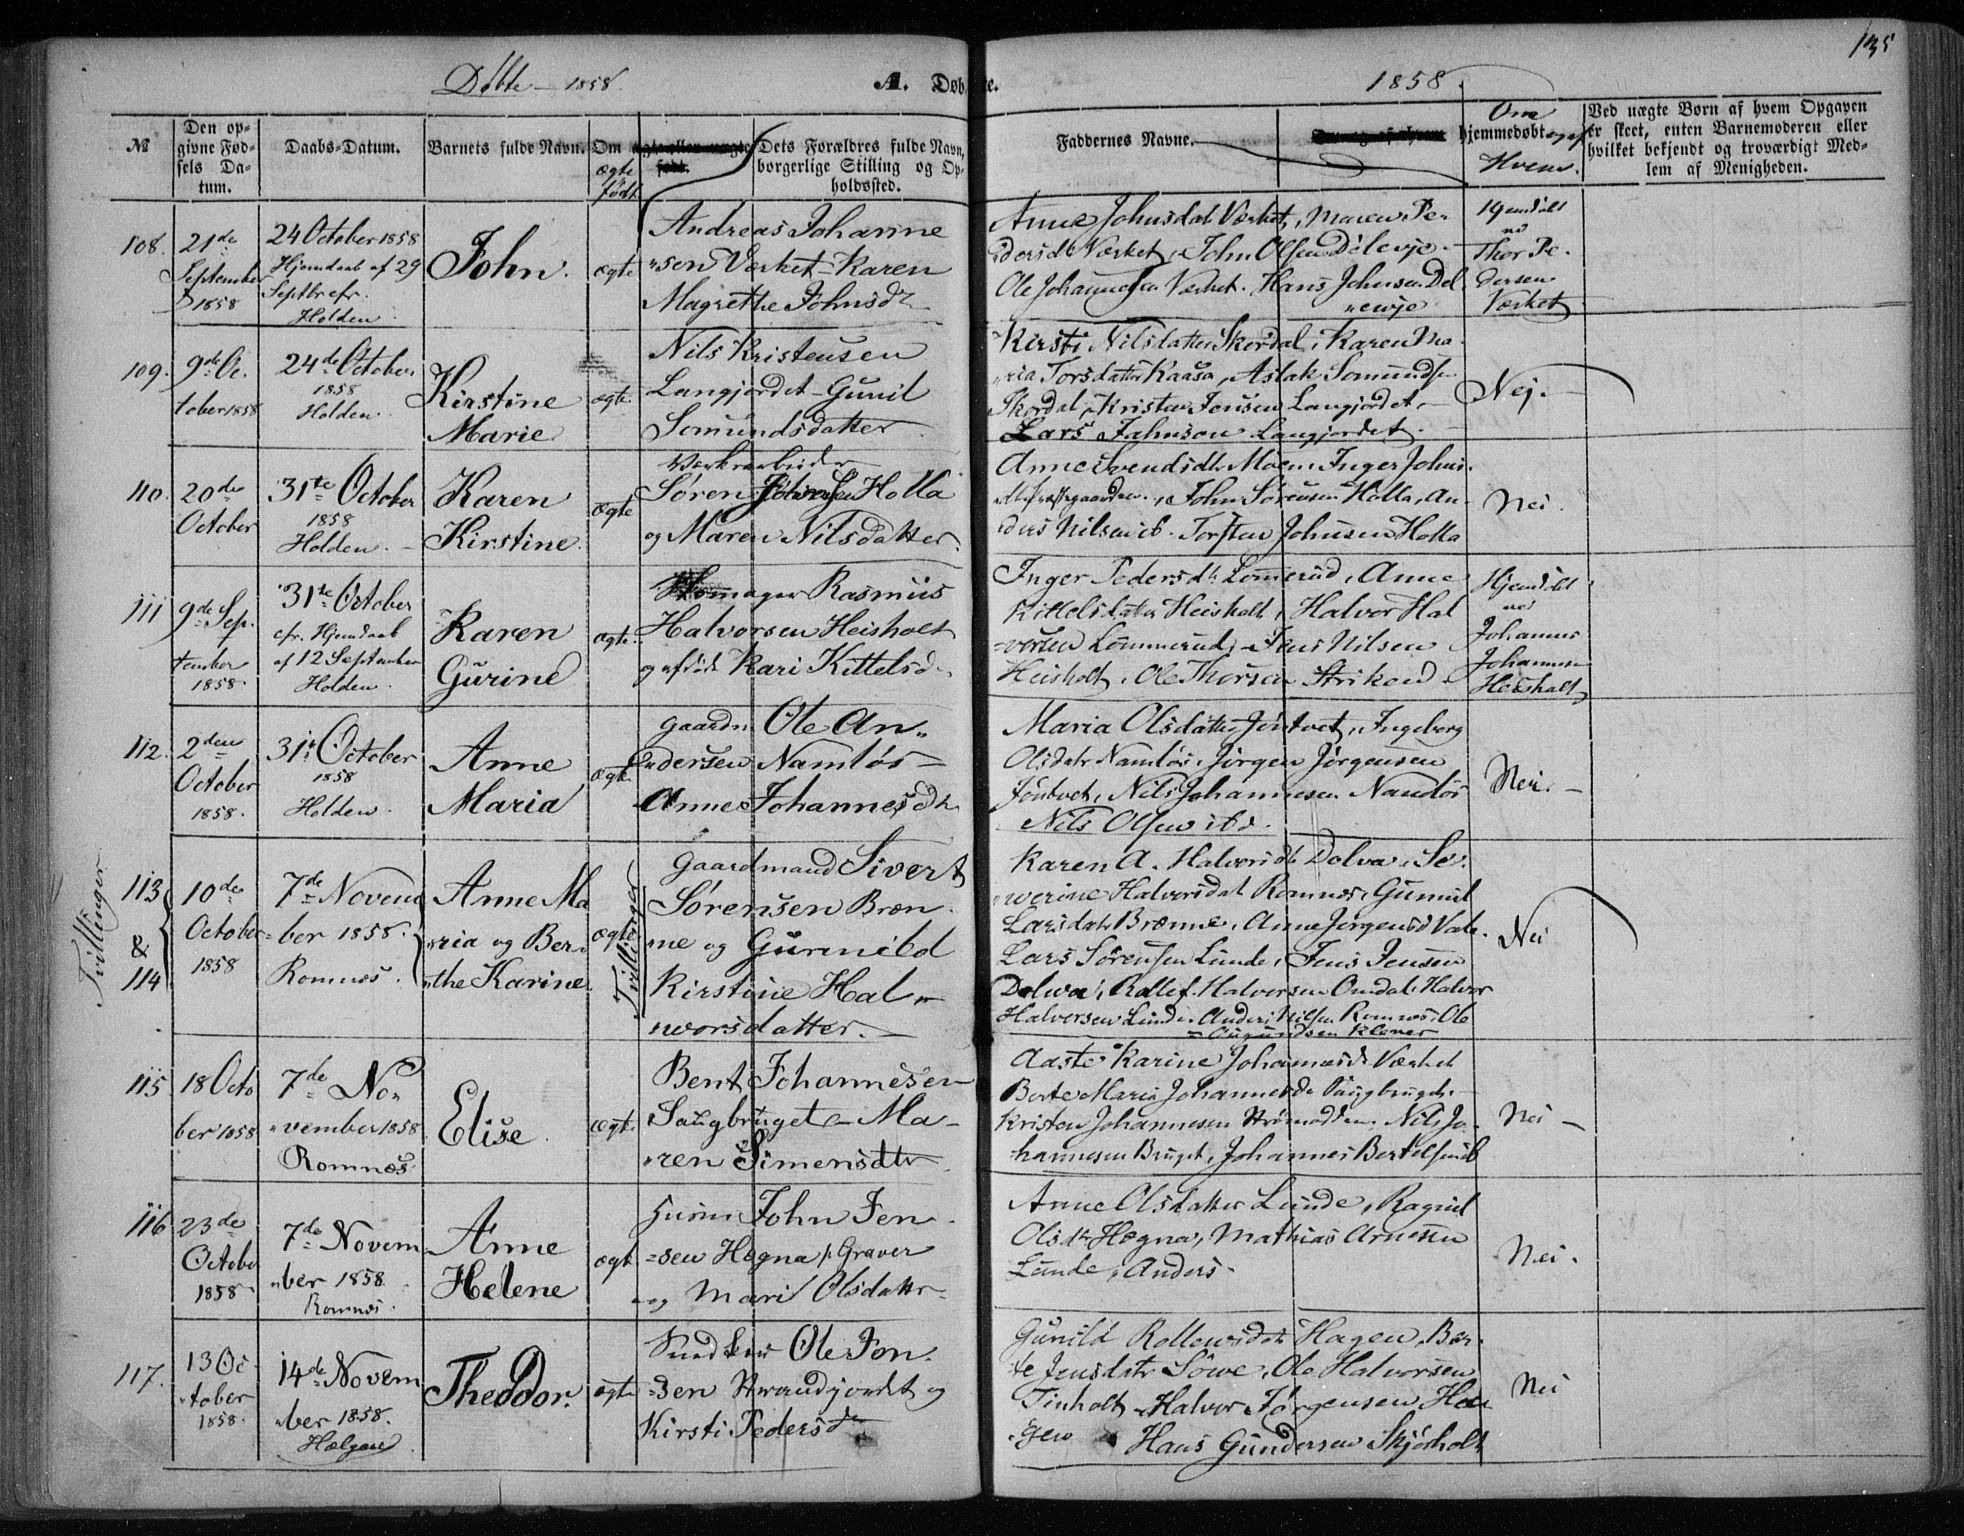 135
Døbte — 1858.
A. Døb
te.
1858.
№
Den op-
givne Fød-
sels Da-
tum.
Daabs-Datum.
Barnets fulde Navn.
Om
ægte
født
ægte eller uægte
født.
Dets Forældres fulde Navn,
borgerlige Stilling og Op-
holdssted.
Faddernes Navne.
Om
hjemmedøbt og af
Hvem.
Ved uægte Børn af hvem Opgaven
er skeet, enten Barnemoderen eller
hvilket bekjendt og troværdigt Med-
lem af Menigheden.
108.
21de
September
1858
24 October 1858
Hjemdaab af 29
Septbr efr.
Holden
John.
ægte
Andreas Johanne
"sen Værket - Karen
Magrethe Johnsd
Anne Johnsdat Værket, Maren Pe-
dersdt Værket, John Olsen Dølevje.
Ole Johannesen Værket. Hans Johnsen Døl
"evje
Thor Pe-
dersen
Værket
109.
9de Oc-
tober 1858
24de October
1858
Holden
Kirstine
Marie
ægte
Nils Kristensen
Langjordet - Gunil
Somundsdatter
Kirsti Nilsdatter Skordal, Karen Ma-
"ria Torsdatter Kaasa, Aslak Somundsen
Skordal, Kristen Jensen Langjordet,
Lars Johnson Langjordet.
Nej.
110.
20de
October
31te October
1858
Holden.
Karen
Kirstine
ægte
Værksarbeider
Søren Holla
og Maren Nilsdatter.
Anne Svendsdtr Moen, Inger Johns.
John Sørensen Holla, An-
ders Nilsen ib. Torsten Johnsen Holla
Nei.
111
9de Sep-
tember
1858
31te October
efr. Hjemdaab
af 12 September
Holden
Karen
Gurine
ægte
Rasmus
Halvorsen Heisholt
og Kari Kittelsd.
Inger Pedersdt Lommerud, Anne
Kittelsdatter Heisholt, Halvor Hal
"vorsen Lommerud, Jens Nilsen
Heisholt, Ole Thorsen
Hjemdøbt
ved
Johannes
Johannesen
Heisholt
112.
2den
October
1858.
31t October
1858
Holden.
Anne
Maria
ægte
Gaardm Ole An"
"dersen Namløs -
Anne Johannesdtr
Maria Olsdatter Jøntvet, Ingeborg
Olsdatr Namløs, Jørgen Jørgensen
Jøntvet, Nils Johannesen Namløs
Nils Olsen ibd.
Nei.
Tvillinger
113
&
114
10de
October
1858
7de Novem
ber 1858.
Romnæs.
Anne Ma
"ria og Ber-
"the Karine.
ægte
Tvillinger
Gaardmand Sivert
Sørensen Bræn-
ne og Gunnild
Kirstine Hal"
"vorsdatter.
Karen A. Halvorsdt Dolva, Se-
verine Halvorsdat Romnæs, Gunnil
Larsdatr Brænne, Anne Jørgensd
Lars Sørensen Lunde, Jens Jensen
Dolva, Rollef Halvorsen Omdal, Halvor
Halvorsen Lunde, Anders Nilsen Romnæs, Ole
Klever
Nei
115
18 Octo
ber 1858
7de No"
"vember 1858
Romnæs.
Elise.
ægte
Bent Johannesen
Saugbruget - Ma-
"ren Simensdtr
Aaste Karine Johannesd Værket
Berte Maria Johannesdr Saugbruget.
Kristen Johannesen Strømodden. Nils Jo-
hannesen Bruget, Johannes Bertelsen ib
Nei
116
23de
October
1858
7de Novem
"ber 1858
Romnæs.
Anne
Helene
ægte
John Jen-
"sen Hægna p. Graver
og Mari Olsdatr
Anne Olsdatter Lunde, Ragnil
Olsdr Hægna, Mathias Arnesen
Lunde, Anders.
Nei.
117.
13 Oc-
"tober
1858.
14de Novem
"ber 1858.
Helgen
Theodor.
ægte
Snedker Ole Jon-
"sen Strandjordet og
Kirsti Pedersd
Gunild Rollevsdatr Hagen, Ber-
te Jensdatr Søwe, Ole Halvorsen
Tinholt, Halvor Jørgensen Ha-
gen Hans Gundersen Skjørholt
Nei